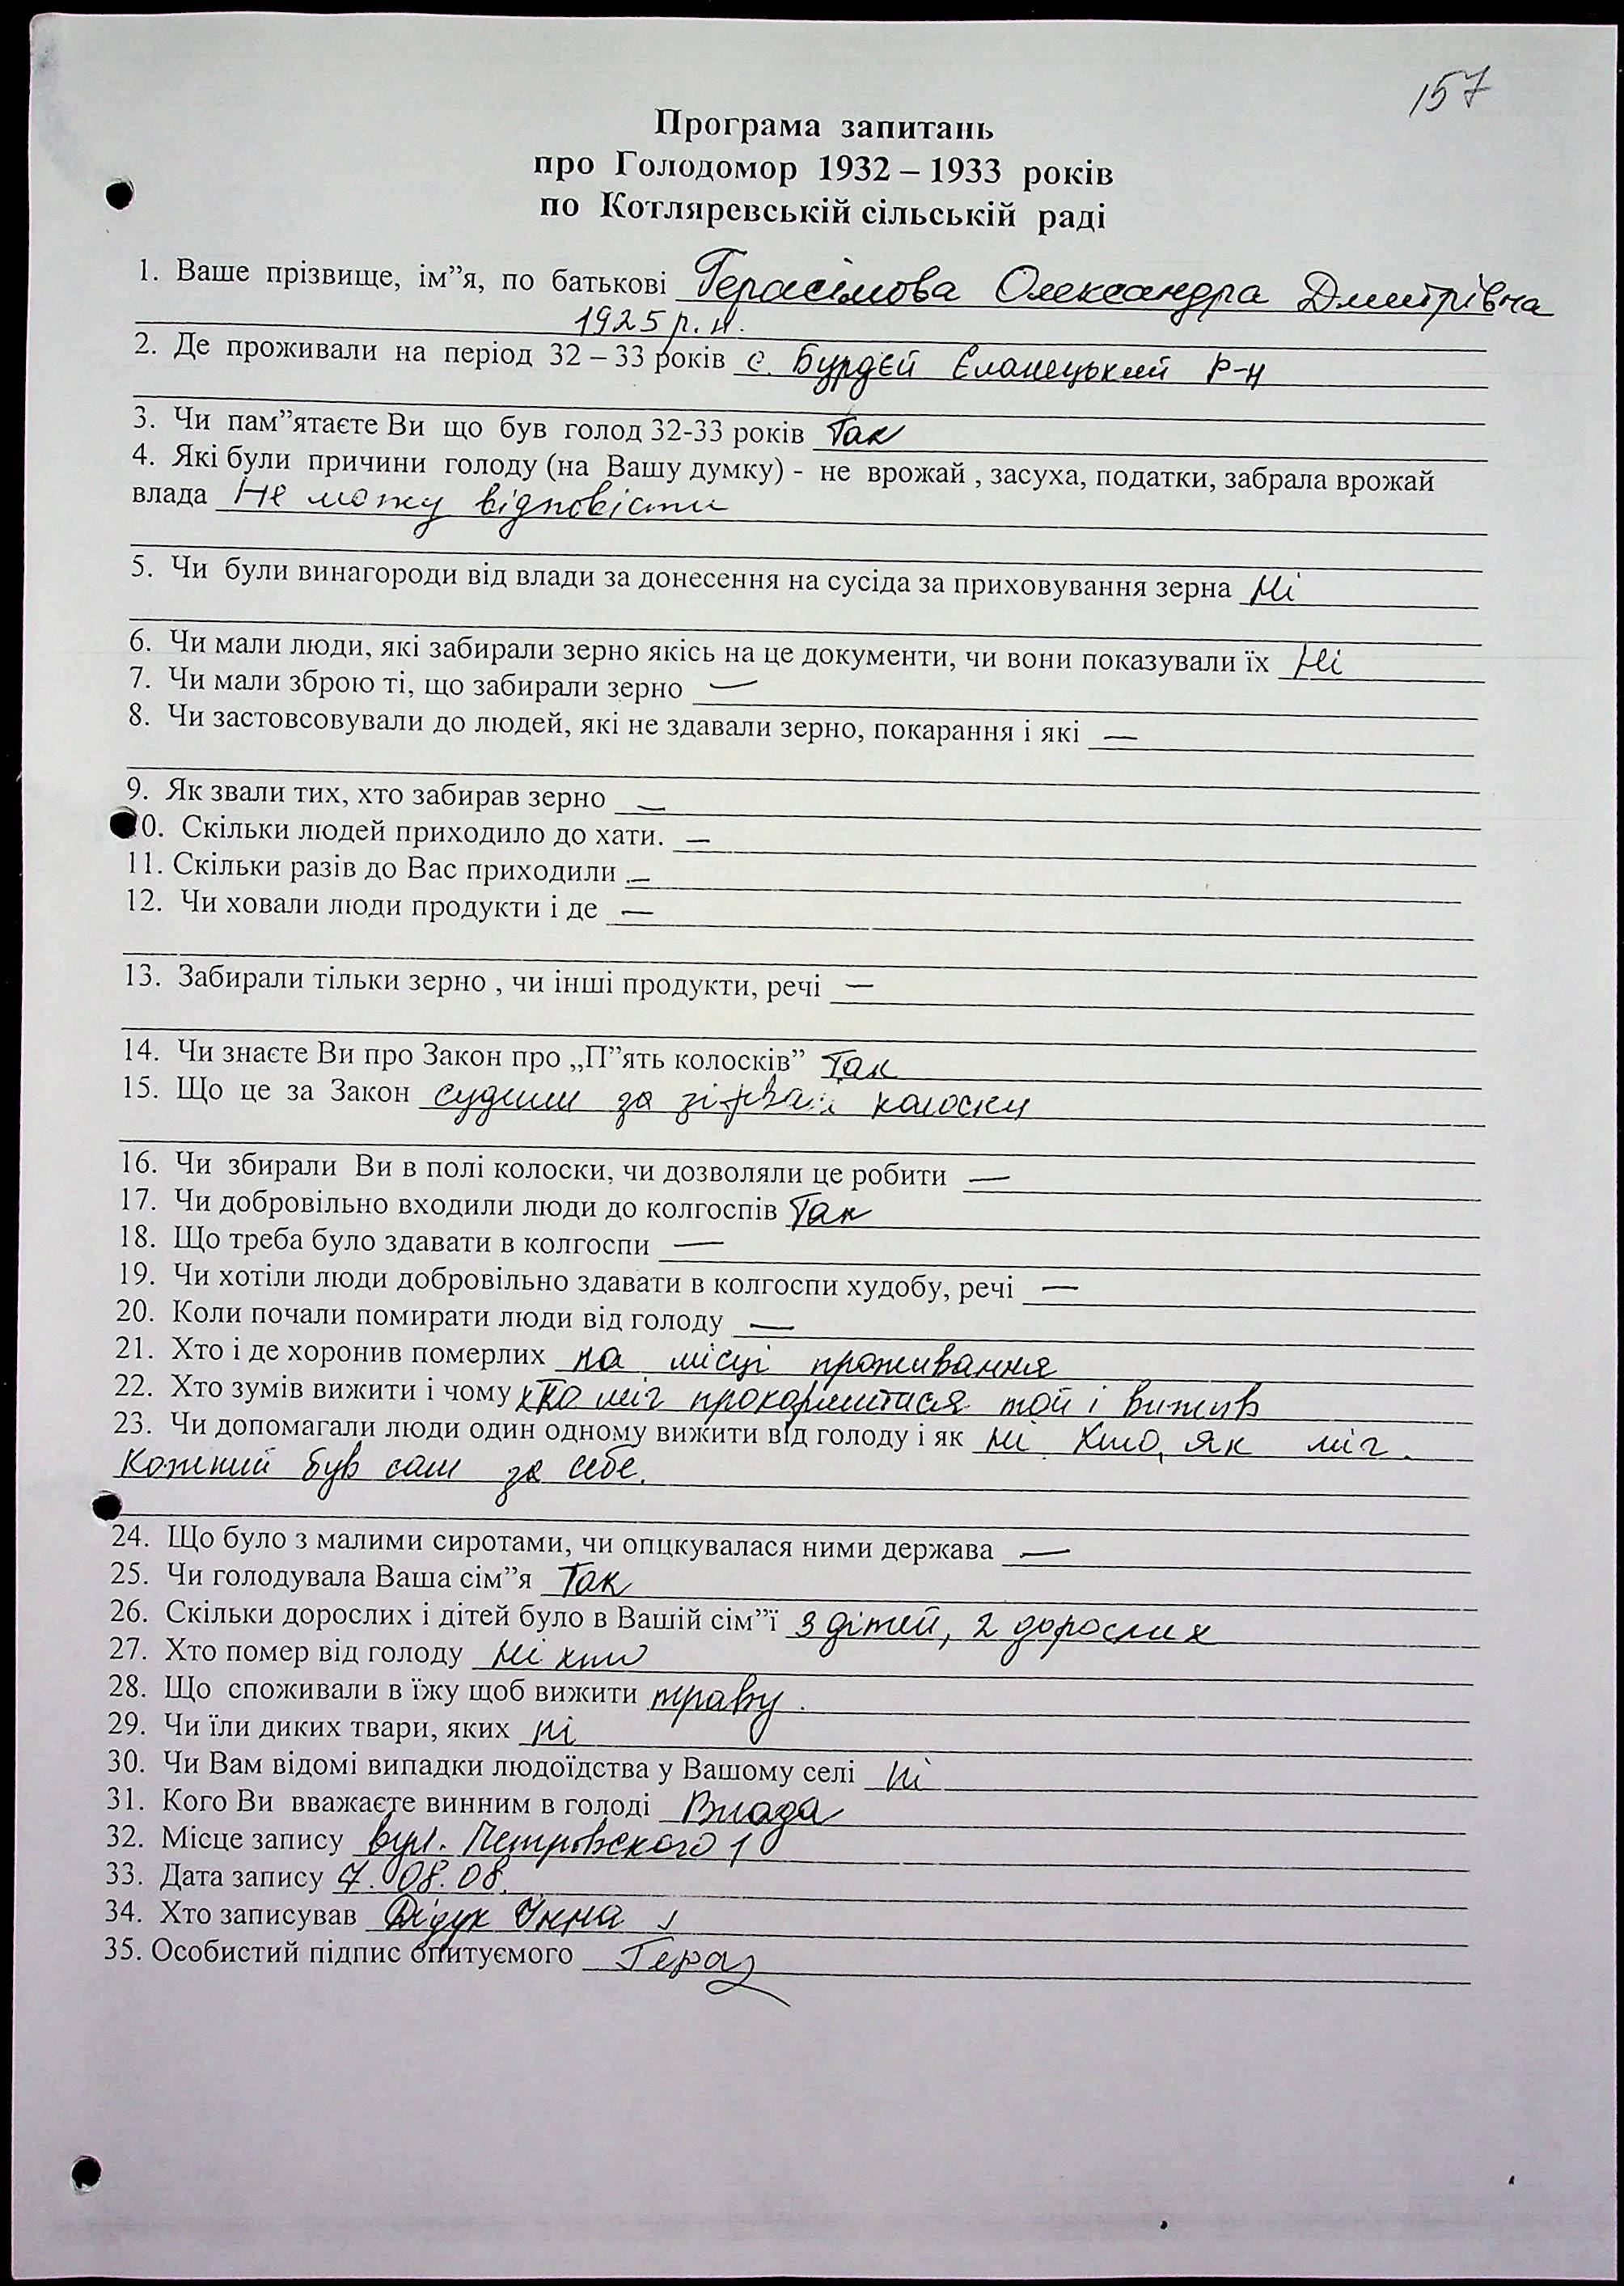 157
Програма запитань
про Голодомор 1932 – 1933 років
по Котляревській сільській раді
1. Ваше прізвище, ім”я, по батькові Герасімова Олександра Дмитрівна
1925 р.н.
2. Де проживали на період 32 – 33 років с. Бурдєй Єланецький р-н
3. Чи пам”ятаєте Ви що був голод 32-33 років Так
4. Які були причини голоду (на Вашу думку) - не врожай , засуха, податки, забрала врожай
влада Не можу відповісти
5. Чи були винагороди від влади за донесення на сусіда за приховування зерна Ні
6. Чи мали люди, які забирали зерно якісь на це документи, чи вони показували їх Ні
7. Чи мали зброю ті, що забирали зерно —
8. Чи застовсовували до людей, які не здавали зерно, покарання і які —
9. Як звали тих, хто забирав зерно —
0. Скільки людей приходило до хати. —
11. Скільки разів до Вас приходили —
12. Чи ховали люди продукти і де —
13. Забирали тільки зерно , чи інші продукти, речі —
14. Чи знаєте Ви про Закон про „П”ять колосків” Так
15. Що це за Закон судили за зірвані колоски
16. Чи збирали Ви в полі колоски, чи дозволяли це робити —
17. Чи добровільно входили люди до колгоспів Так
18. Що треба було здавати в колгоспи —
19. Чи хотіли люди добровільно здавати в колгоспи худобу, речі —
20. Коли почали помирати люди від голоду —
21. Хто і де хоронив померлих на місці проживання
22. Хто зумів вижити і чому хто міг прокормитися той і вижив
23. Чи допомагали люди один одному вижити від голоду і як ні. Хто, як міг.
Кожний був сам за себе.
24. Що було з малими сиротами, чи опцкувалася ними держава —
25. Чи голодувала Ваша сім”я Так
26. Скільки дорослих і дітей було в Вашій сім”ї 3 дітей, 2 дорослих
27. Хто помер від голоду Ні хто
28. Що споживали в їжу щоб вижити траву.
29. Чи їли диких твари, яких ні
30. Чи Вам відомі випадки людоїдства у Вашому селі ні
31. Кого Ви вважаєте винним в голоді Влада
32. Місце запису вул. Петровского 1
33. Дата запису 7. 08. 08.
34. Хто записував Дідук Інна
35. Особистий підпис опитуємого Гераз